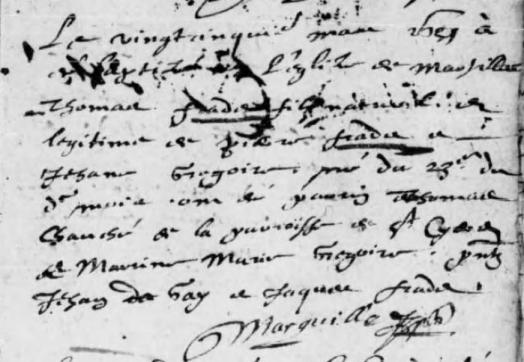 Le vingtcinque mars a
esté baptizé en l'Eglize de
Thomas frade fils naturel &
legitime de piere frade &
Jehane Gregoire, né du 23e du
dt mois ont été parin Thomas
Chauché de la parroisse de St
& Marine Marie Gregoire, pntz
Jehan de Gay & Jaques frade.
Marquille